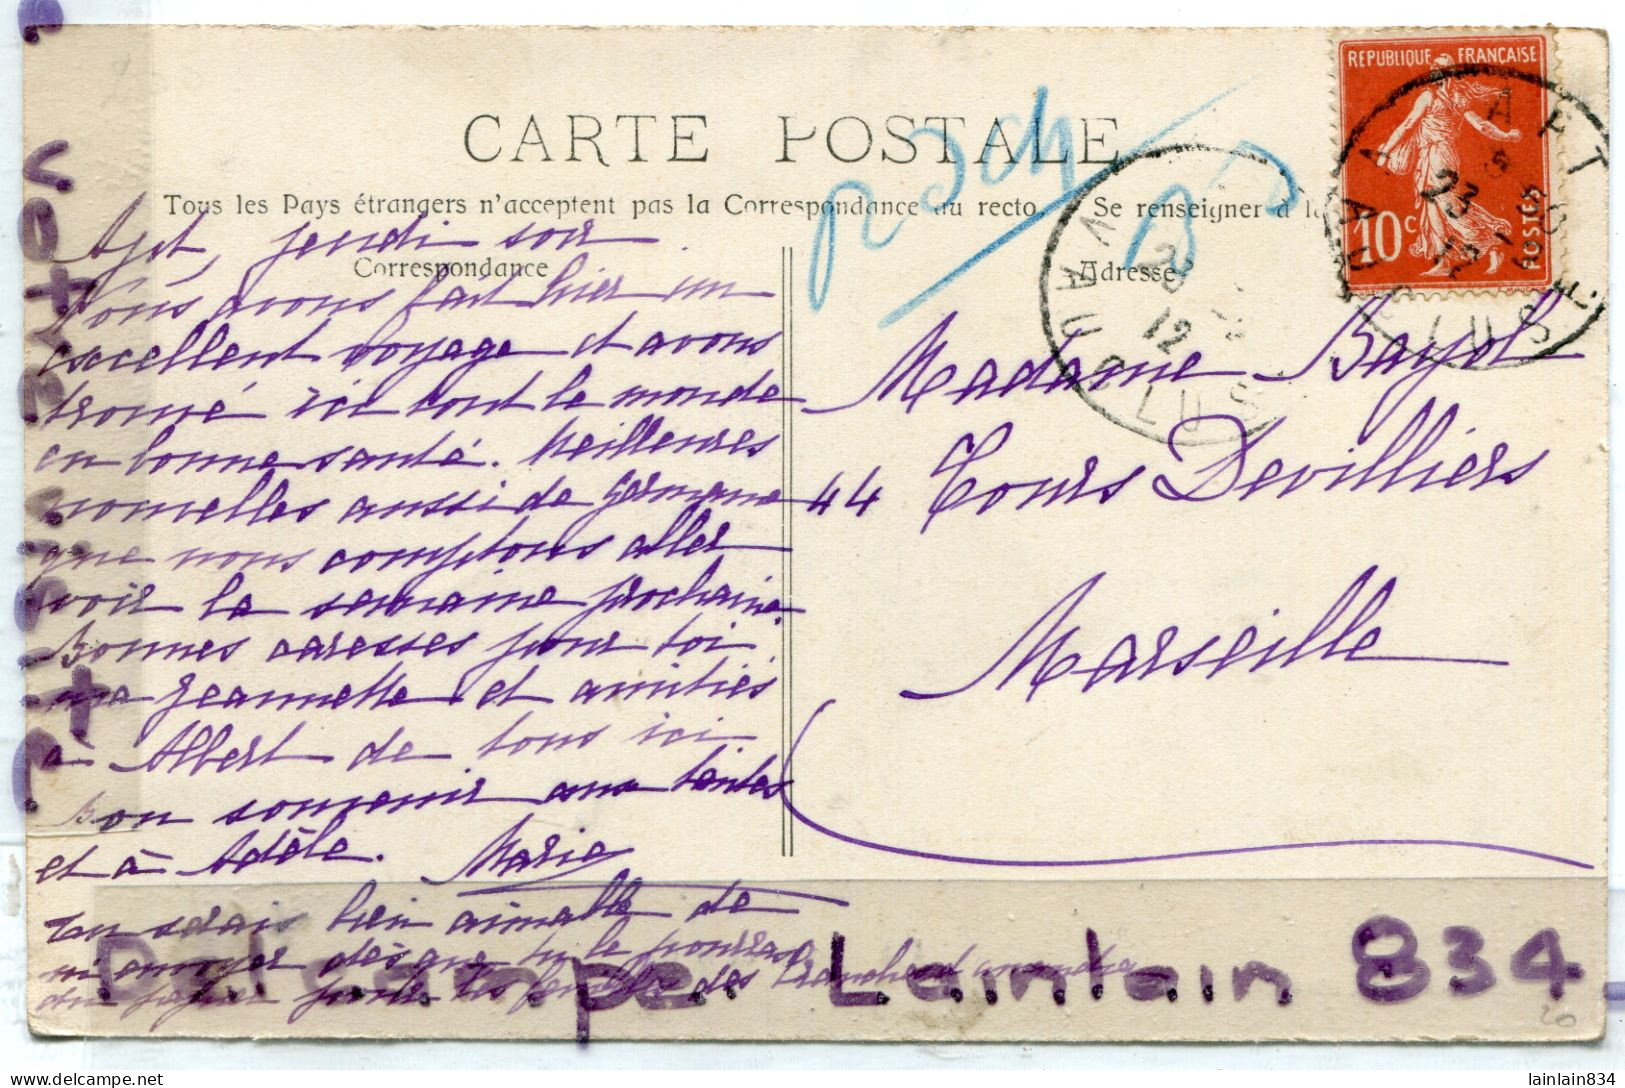 CARTE POSTALE
Tous les Pays étrangers n'acceptent pas la Correspondance au recto. Se renseigner à la
Correspondance
Adresse
REPUBLIQUE FRANÇAISE
10c
POSTES
APT
VAUCLUSE
23
12
VAUCLUSE
12
Apt, jeudi soir
Nous avons fait hier un
excellent voyage et avons
trouvé ici tout le monde
en bonne santé. Meilleures
nouvelles aussi de Germaine
que nous comptons aller
voir la semaine prochaine.
Bonnes caresses pour toi
ma Jeannette et amitiés
à Albert de tous ici
Bon souvenir aux tantes
et à Adèle. Marie
Tu serais bien aimable de
m'envoyer dès que tu le pourras
du papier pour les feuilles des
Madame Bayol
44 Cours Devilliers
Marseille
Delcampe. Lainlain 834
20
delcampe.net
lainlain834